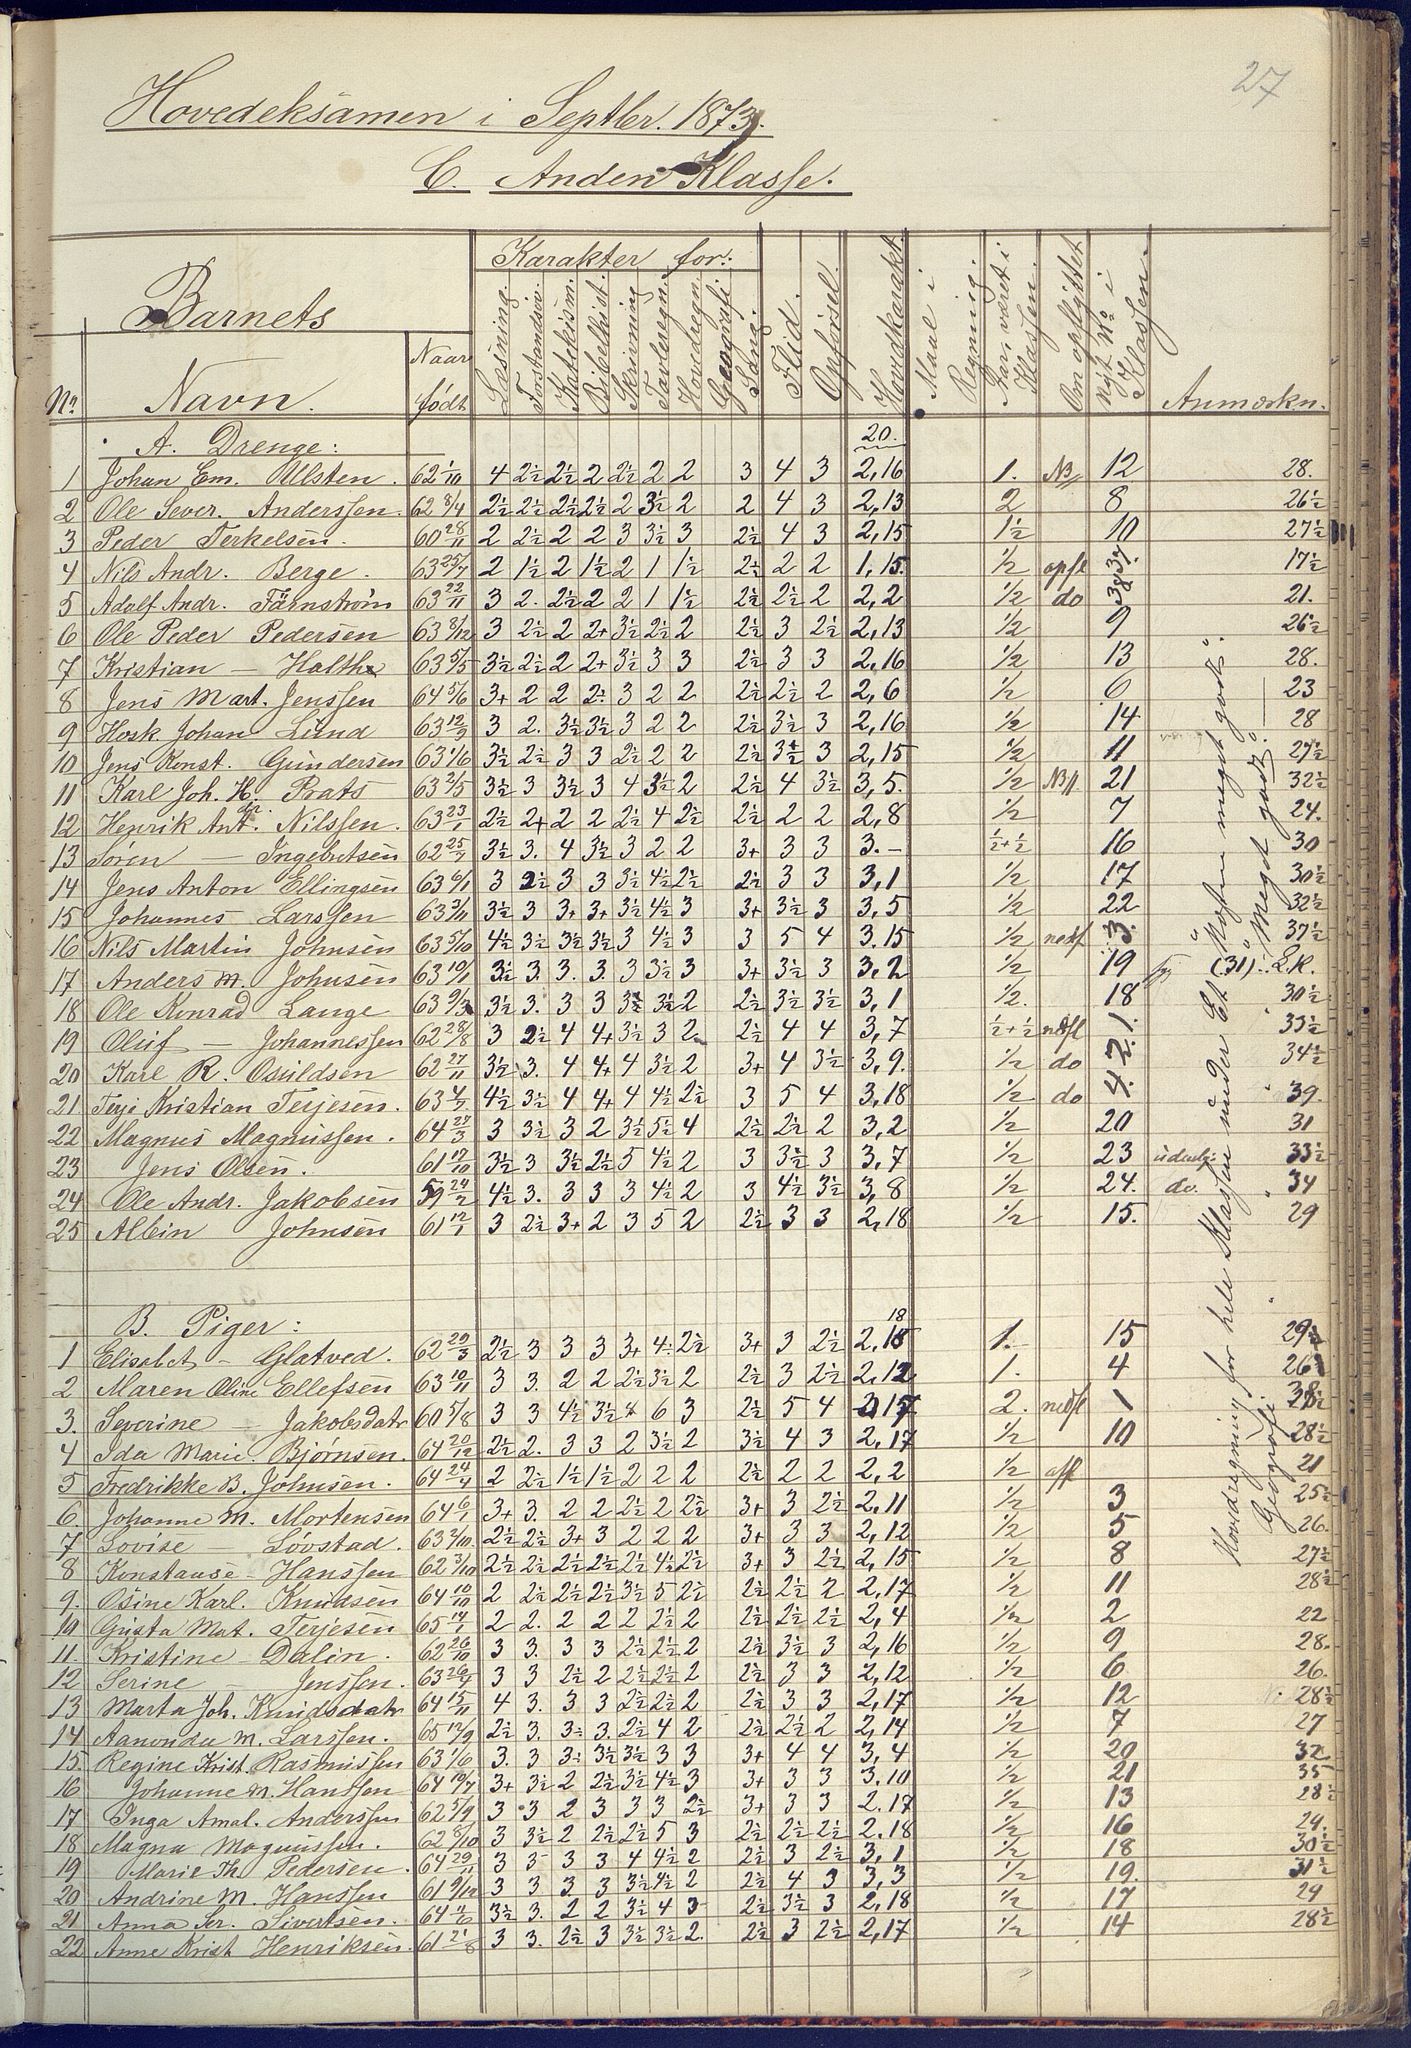 27
Hovedeksamen i Septbr. 1873.
C. Anden Klasse.
Barnets
Karakter for:
No Navn. Naar født Læsning. Forstandsøv. Katekism. Bibelhist. Skrivning Tavleregn. Hovedregn. Geografi Sang. Flid. Opførsel. Hovedkarakt. Maal i Regning. Har været i Klassen. Om opflyttet Nyt No i Klassen. Anmærkn.
A. Drenge: 20.
1 Johan Em. Ullsten. 62 1/10 4 2½ 2½ 2 2½ 2 2 3 4 3 2,16 1. NB 12 28.
2 Ole Sever. Anderssen. 62 8/4 2½ 2½ 2½ 2½ 2 3½ 2 2 4 3 2,13 2 8 26½
3 Peder Terkelsen. 60 28/11 2 2½ 2 2 3 3½ 3 2½ 4 3 2,15 1½ 10 27½
4 Nils Andr. Berge. 63 25/7 2 1½ 2 1½ 2 1 1½ 2½ 2 2 1,15. ½ opfl 37. 17½
5 Adolf Andr. Färnström 63 22/11 3 2. 2½ 2 2 1 1½ 2½ 2½ 2 2,2 ½ do 38 21.
6 Ole Peder Pedersen 63 8/12 3 2½ 2 2+ 3½ 2½ 2 2½ 3 2½ 2,13 ½ 9 26½
7 Kristian — Holthe 63 5/5 3½ 2½ 2 2+ 3½ 3 3 2½ 3 3 2,16 ½ 13 28.
8 Jens Mart. Jenssen 64 5/6 3+ 2 2 2 3 2 2 2½ 2½ 2 2,6 ½ 6 23
9 Hosk Johan Lund 63 12/9 3 2. 3½ 3½ 3 2 2 2½ 3½ 3 2,16 ½ 14 28
10 Jens Konst. Gundersen 63 1/6 3½ 2½ 3 3 2½ 2 2 2½ 3½ 3 2,15 ½ 11 27½
11 Karl Joh. H. Prats 63 2/5 3½ 3 3½ 3 4 3½ 2 2½ 4 3½ 3,5. ½ NB 21 32½
12 Henrik Ant. Nilssen. 63 23/1 2½ 2+ 2 2 2½ 4 2½ 2½ 2 2 2,8 ½ 7 24.
13 Søren — Ingebretsen 62 25/7 3½ 3. 4 3½ 3 2 2 3+ 3 3 3.— ½+½ 16 30
14 Jens Anton Ellingsen 63 6/1 3 2½ 3 3 3½ 4½ 2½ 2½ 3 3 3,1 ½ 17 30½
15 Johannes Larssen 63 2/11 3½ 3 3+ 3+ 3½ 4½ 3 3+ 3½ 3 3,5 ½ 22 32½
16 Nils Martin Johnsen 63 5/10 4½ 3½ 3½ 3½ 3 4½ 3 3 5 4 3.15 ½ nedf 3. 37½
17 Anders M. Johnsen 63 19/1 3½ 3. 3. 3 3 3½ 3 3+ 3½ 3 3,2 ½ 19 (31)
18 Ole Konrad Lange 63 9/3 3½ 3. 3 3 3½ 3½ 2 2½ 3½ 3½ 3,1 ½. 18 30½
19 Oluf — Johannessen 62 28/8 3 2½ 4 4+ 3½ 3 2 2½ 4 4 3,7 ½+½ nedfl 1. 33½
20 Karl R. Osuldsen 62 27/11 3½ 3. 4 4+ 4 3½ 2 3+ 4 3½ 3,9. ½ do 2. 34½
21 Terje Kristian Terjesen. 63 4/7 4½ 3½ 4 4+ 4 4½ 2½ 3 5 4 3,18 ½ do 4. 39.
22 Magnus Magnussen. 64 27/3 3 3½ 3 2 3½ 5½ 4 2½ 2½ 2 3,2 ½ 20 31
23 Jens Olsen. 61 17/10 3½ 3 3½ 2½ 5 4½ 2 3 3½ 3 3,7 ½ 23 33½
24 Ole Andr. Jakobsen 59 24/2 4½ 3. 3 3 3 4½ 2 3 4½ 3½ 3,8 ½ 24. do. 34
25 Albin Johnsen 61 12/1 3 2½ 3+ 2 3 5 2 2½ 3 3 2,18 ½ 15. 29
Hovedregning for hele Klassen under Et "Næsten meget godt".
Geografi "Meget godt".
B. Piger: 18
1 Elisabet — Glatved. 62 20/3 2½ 3 3 3 3+ 4 2½ 3+ 3 2½ 2.18 1. 15 29½
2 Maren Oline Ellefsen 63 10/11 3 3. 2 2 2½ 3½ 2 2½ 3 2½ 2,12 1. 4 26
3. Severine — Jakobsdatr 60 5/8 3 3 4½ 3½ 6 3 2½ 5 4 15 2. nedfl 1
4 Ida Marie Bjørnsen. 64 20/12 2½ 2. 3 3 2 3½ 2 3½ 4 3 2,17 ½ 10 28½
5 Fredrikke B. Johnsen. 64 24/4 2 2½ 1½ 1½ 2 2 2 2½ 2 2 2,2 ½ opfl 21
6. Johanne M. Mortensen 64 6/1 3+ 3. 2 2 2½ 2 2½ 3+ 3 2½ 2,11 ½ 3 25½
7 Lovise — Løvstad. 63 2/10 2½ 2½ 3+ 3 2 2 2 3+ 3 3 2,12 ½ 5 26.
8 Konstanse Hanssen 62 3/10 2½ 2½ 2½ 2½ 2½ 4½ 2½ 3+ 3 2½ 2,15 ½ 8 27½
9. Osine Karl. Knudsen 64 10/10 2 2½ 2½ 2½ 3½ 5 2½ 2½ 2½ 2 2,17 ½ 11 28½
10 Gusta Mat. Terjesen 65 14/1 2 2. 2 2 2 2½ 2 2½ 2½ 2½ 2,4 ½ 2 22
11. Kristine — Dalin. 62 26/10 3 3. 3 3 2½ 2½ 2 2½ 3½ 3 2,16 ½ 9 28.
12 Serine — Jenssen. 63 26/4 3 3 2½ 2 2½ 2½ 2 2½ 3 3 2,12 ½ 6 26.
13 Marta Joh. Knudsdatr 64 15/11 4 3. 3 3 2½ 2½ 2 2½ 3 3 2,17 ½ 12 28½
14 Aanonda M. Larssen. 65 12/9 2½ 3. 3 3. 2½ 4 2 2½ 2½ 2 2,14 ½ 7 27
15. Regine Krist. Rasmussen 63 1/6 3. 3 3 3½ 3½ 3 3 3+ 4 4 3,4 ½ 20 32
16 Johanne M. Hanssen 64 19/7 3+ 3½ 2 2½ 3½ 4½ 3 3+ 3 3 3.10 ½ 21 35
17 Inga Amal. Anderssen 62 5/9 3 3 2 3 3 3 2½ 3+ 3 3 2.17 ½ 13 28½
18 Magna Magnussen. 62 8/10 3 3½ 2 2½ 2½ 5 3 2½ 2½ 2½ 2.18 ½ 16 29.
19 Marie Th. Pedersen. 64 29/11 3 3 3 3 4 4½ 2 2½ 3 2½ 3,1 ½ 18 30½
20 Andrine M. Hanssen 61 9/12 3 3 3 3 3½ 4½ 2 2½ 4 3 3,3 ½ 19. 31½
21 Anna Ser. Sivertsen. 64 11/6 3½ 3. 2 2 3½ 4 3 2½ 3½ 3 2,18 ½ 17 29
22 Anne Krist Henriksen. 61 21/8 3 3. 2½ 3 3½ 3½ 2. 2½ 3 2½ 2,17 ½ 14 28½